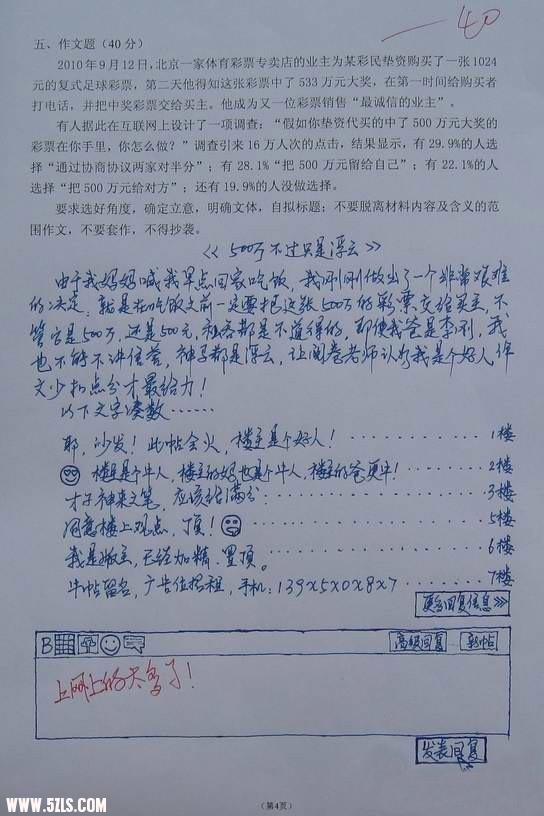 —40
五、作文题（40分）
2010年9月12日,北京一家体育彩票专卖店的业主为某彩民垫资购买了一张1024
元的复式足球彩票，第二天他得知这张彩票中了533万元大奖，在第一时间给购买者
打电话，并把中奖彩票交给买主。他成为又一位彩票销售“最诚信的业主”。
有人据此在互联网上设计了一项调查：“假如你垫资代买的中了500万元大奖的
彩票在你手里，你怎么做？”调查引来16万人次的点击，结果显示，有29.9%的人选
择“通过协商协议两家对半分”；有28.1%“把500万元留给自己”；有22.1%的人
选择“把500万元给对方”；还有19.9%的人没做选择。
要求选好角度，确定立意，明确文体，自拟标题；不要脱离材料内容及含义的范
围作文，不要套作，不得抄袭。
《500万不过只是浮云》
由于我妈妈喊我早点回家吃饭，我刚刚做出了一个非常艰难
的决定，就是在吃饭之前一定要把这张500万的彩票交给买主，不
管它是500万，还是500元，私吞都是不道德的，即使我爸是李刚，我
也不能不讲信誉，神马都是浮云，让阅卷老师认为我是个好人作
文少扣点分才最给力！
以下文字凑数……
耶，沙发！此帖会火，楼主是个好人！………1楼
楼主是个牛人，楼主的妈也是个牛人，楼主的爸更牛！……2楼
才子神来之笔，应该给满分………3楼
同意楼上观点，顶！………5楼
我是版主，已经加精、置顶。………6楼
牛帖留名，广告位招租，手机：139x5x0x8x7………7楼
更多回复信息>>>
B 高级回复 转帖
上网上的太多了！
发表回复
WWW.5ZLS.COM
（第4页）